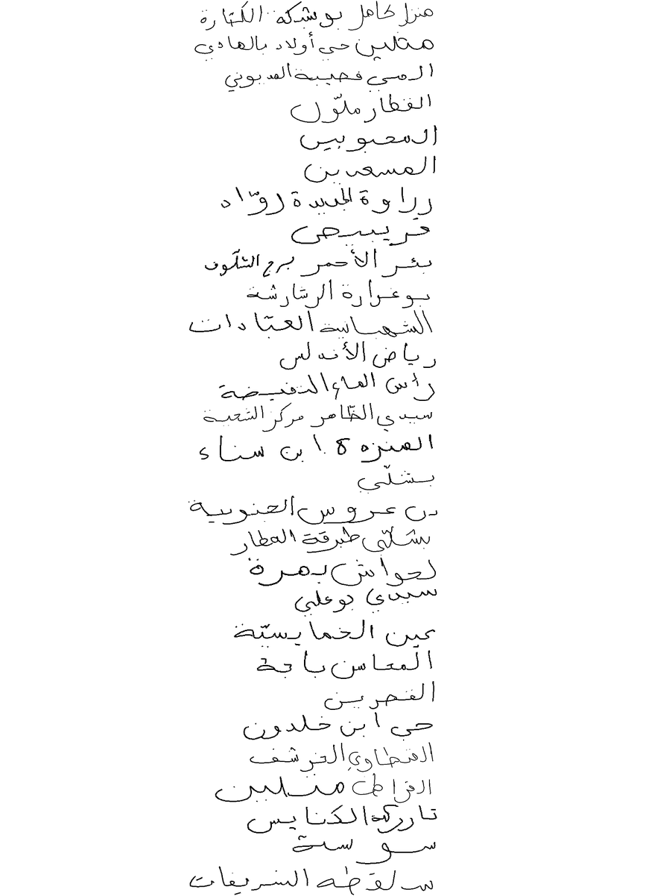 منزل كامل بوشبكة الكتارة
متلين حي أولاد بالهادي
فصيبة المديوني
القطار ملّول
المعبوبين
المسعدين
زاوة الجديدة روّاد
بئر الأحمر برج الشلّوف
بوغرارة الرشارشة
الشهبانية العبّادات
رياض الأندلس
رأس الماء النفيضة
سيدي الظاهر مركز الشعبة
المنزه 8 ابن سناء
بشلّي
بن عروس الجنوبية
بشلّي طبرقة العطار
لحواش بهرة
سيدي بوعلي
عين الخمايسيّة
باجة
الفجرين
حي ابن خلدون
الخرشف
متلين
تاركة الكنايس
سوسة
سلقطه الشريفات